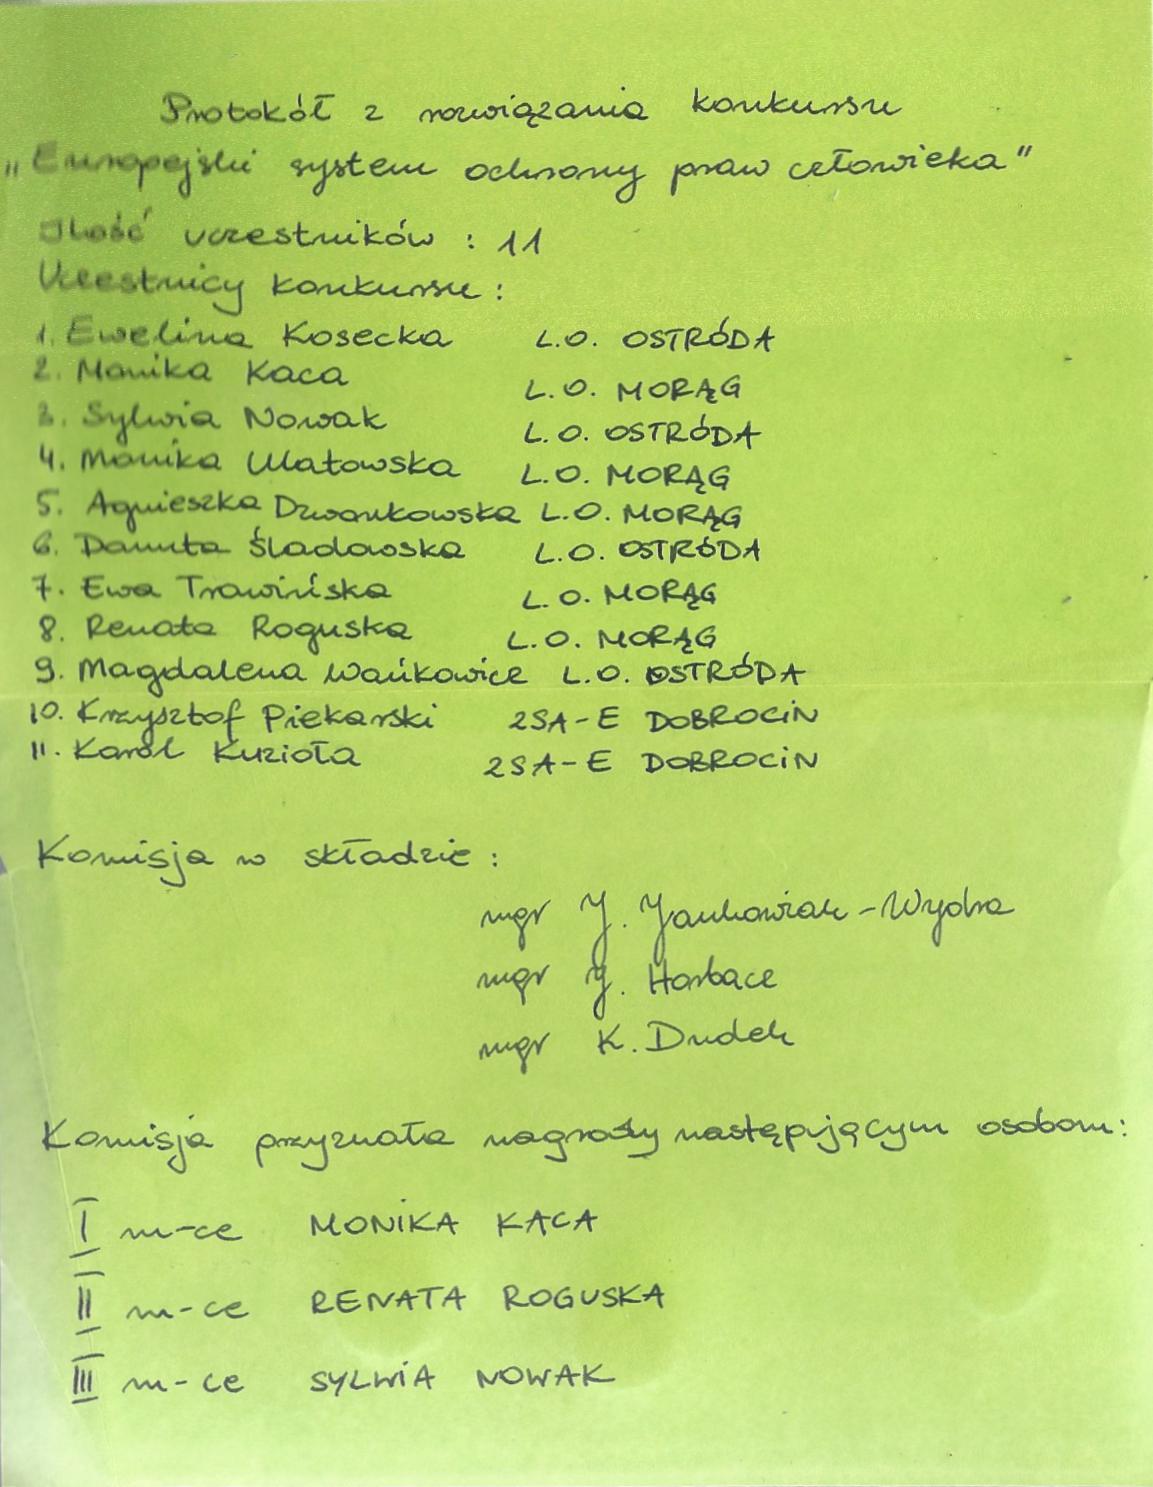 Protokół z rozwiązania konkursu
„Europejski system ochrony praw człowieka"
Ilość uczestników : 11
Uczestnicy konkursu :
1. Ewelina Kosecka L.O. OSTRÓDA
2. Monika Kaca L.O. MORĄG
3. Sylwia Nowak L.O. OSTRÓDA
4. Monika Ulatowska L.O. MORĄG
5. Agnieszka Dzwonkowska L.O. MORĄG
6. Danuta Śladowska L.O. OSTRÓDA
7. Ewa Trawińska L.O. MORĄG
8. Renata Roguska L.O. MORĄG
9. Magdalena Wańkowicz L.O. OSTRÓDA
10. Krzysztof Piekarski ZSA-E DOBROCIN
11. Karol Kuzioła ZSA-E DOBROCIN
Komisja w składzie :
mgr J. Jankowiak-Wydra
mgr J. Horbacz
mgr K. Dudek
Komisja przyznała nagrody następującym osobom:
I m-ce MONIKA KACA
II m-ce RENATA ROGUSKA
III m-ce SYLWIA NOWAK